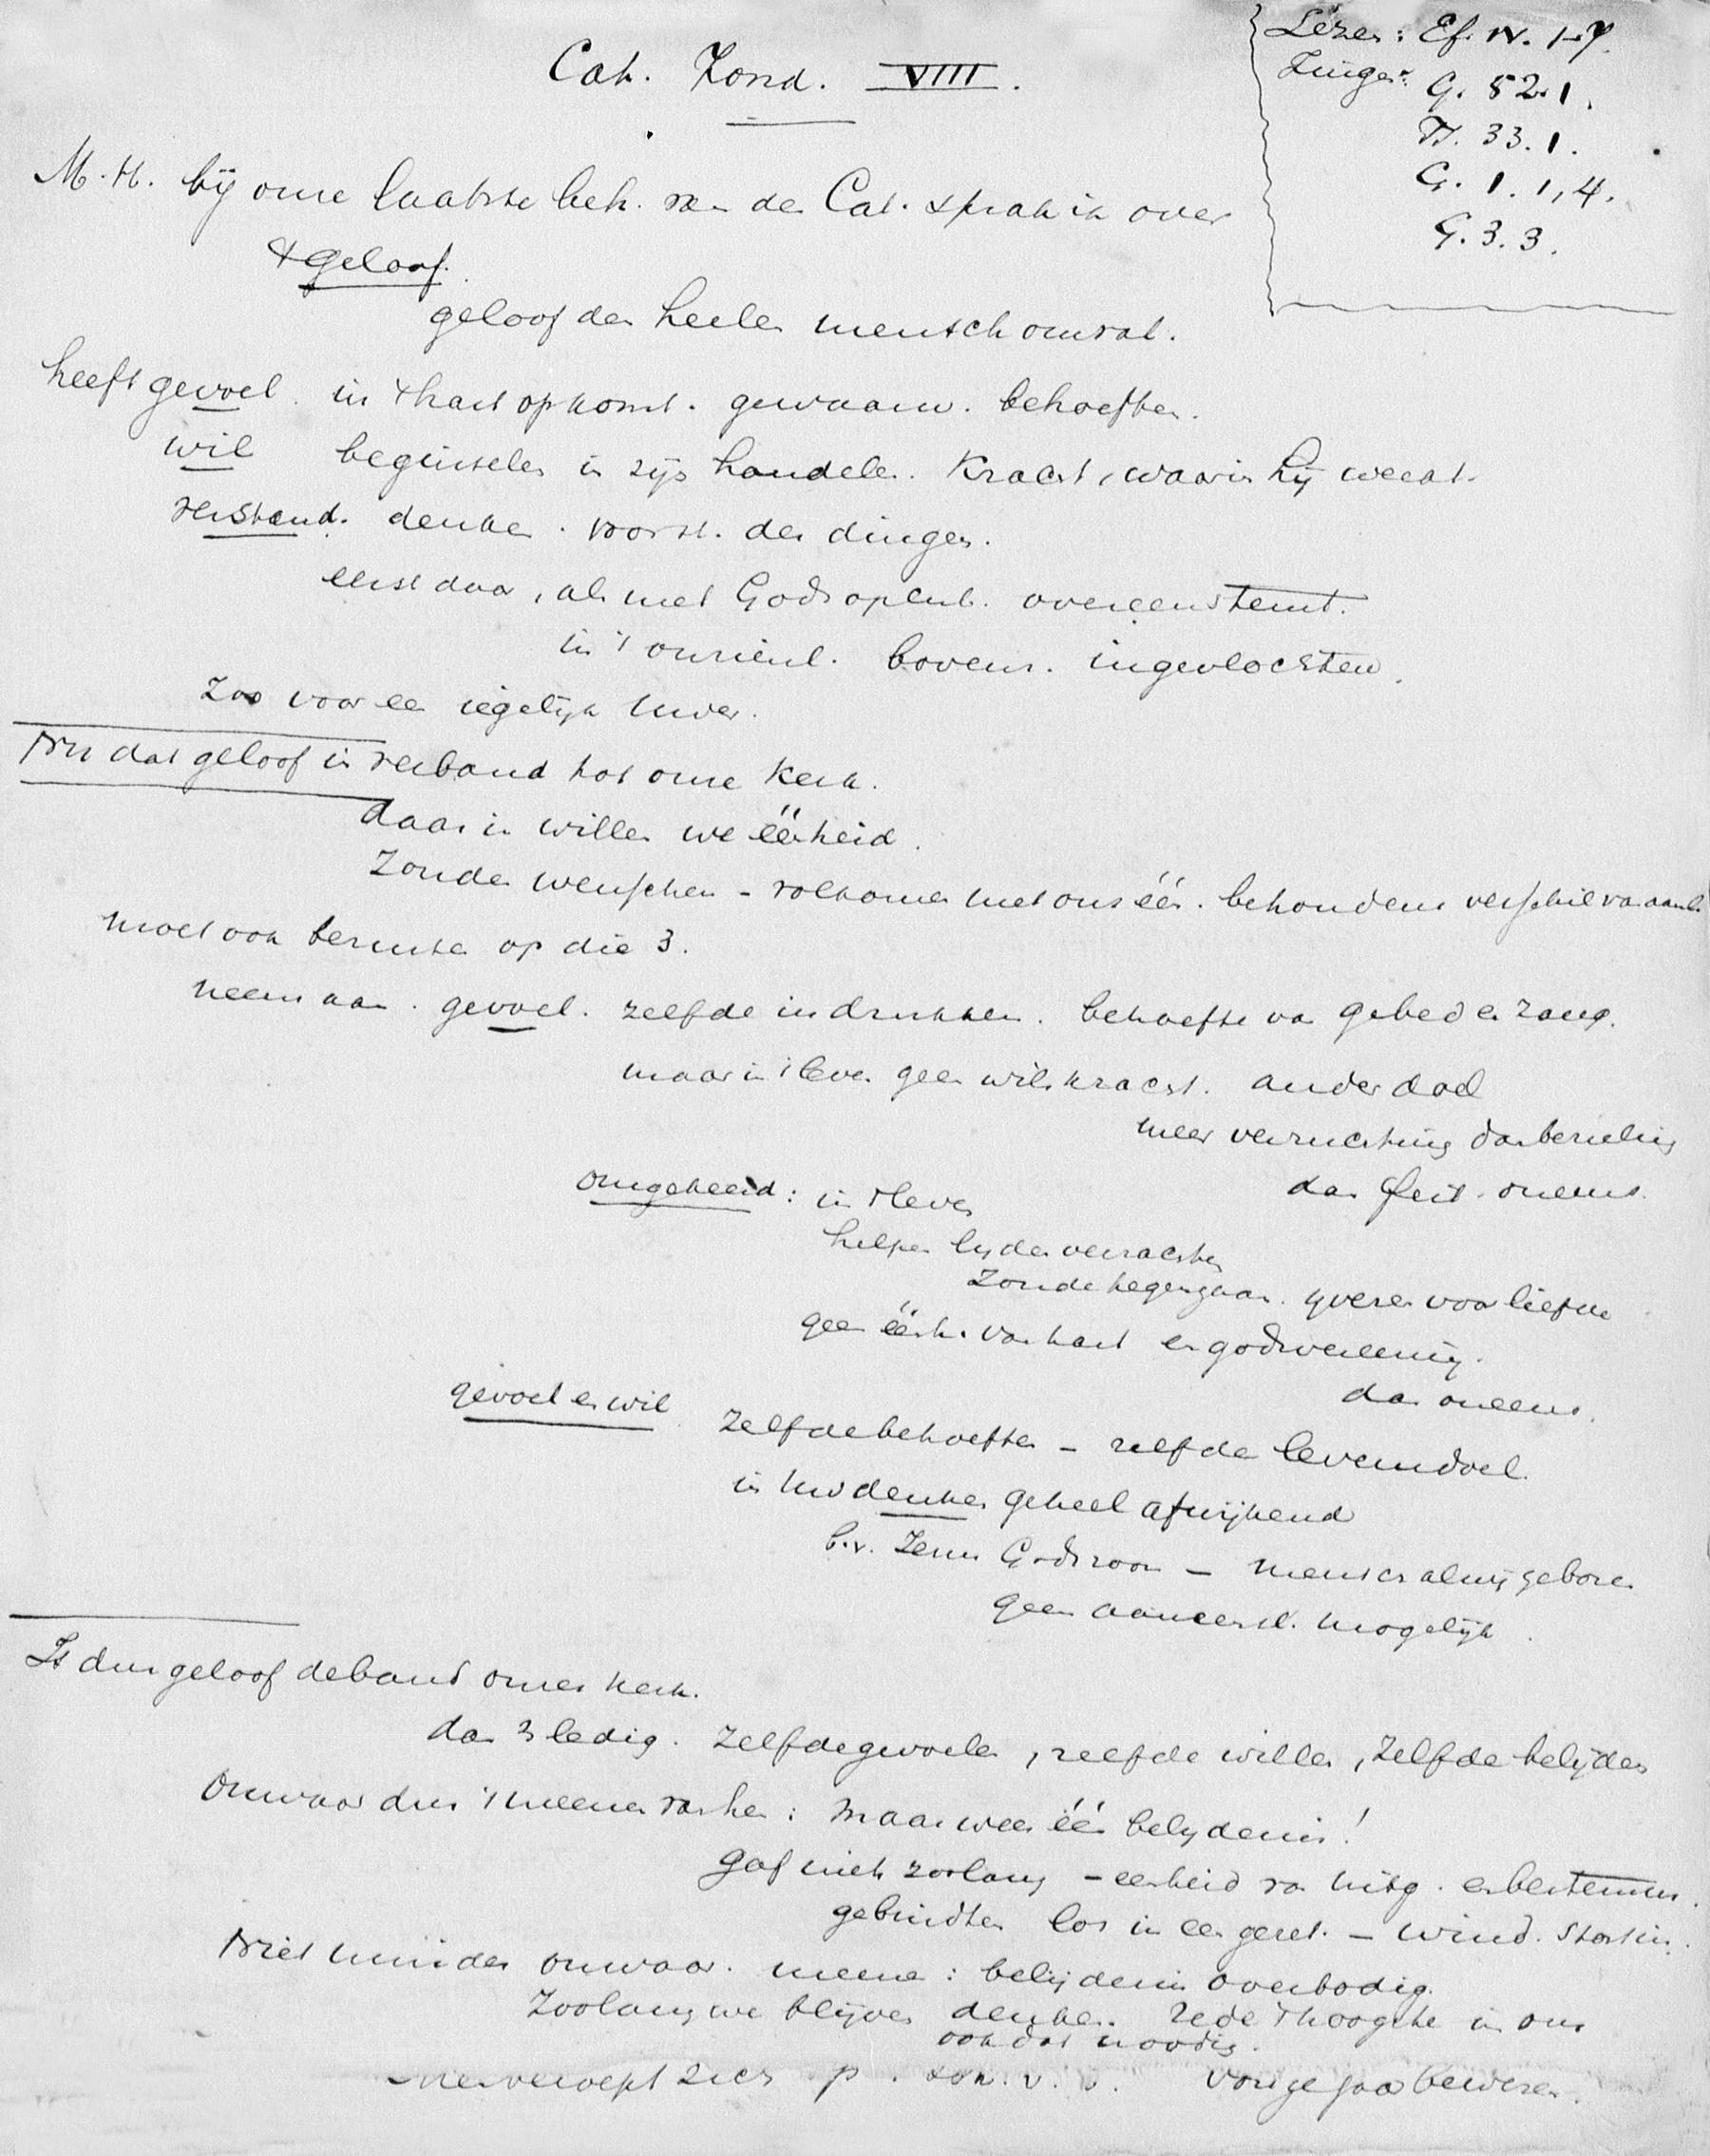 Cat. Zond. VIII.
Lezen: Ef. IV. 1-7.
Zingen: G. 52.1.
Ps. 33.1.
G. 1. 1,4.
G. 3. 3.
M.H. bij onze laatste beh. van den Cat. sprak ik over
't geloof.
geloof den heelen mensch omvat.
heeft gevoel. in 't hart opkomt. gewaarw. behoeften.
wil beginselen in zijn handelen. Kracht, waarin hij werkt.
verstand. denken. voorst. der dingen.
eerst daar, als met Gods openb. overeenstemt.
in 't onzienl. bovenz. ingevlochten.
Zoo voor een iegelijk uwer.
Nu dat geloof in verband tot onze Kerk.
daar in willen we eenheid.
Zouden wenschen - volkomen met ons één. behoudens verschil van aanl.
moet ook berusten op die 3.
neem aan. gevoel. zelfde indrukken. behoefte van gebed en zang.
maar in 't leven geen wilskracht. ander doel
meer verzuchting dan bezieling
dan feit. oneens.
omgekeerd: in 't leven
helpen lijden verzachten
Zonde tegengaan. ijveren voor liefde
geen eenh. van hart en godsvereering.
dan oneens.
gevoel en wil zelfde behoeften - zelfde levensdoel.
in hun denken geheel afwijkend
b.v. Jezus Gods zoon - mensch als wij geboren
geen aaneensl. mogelijk.
Is dus geloof de band onzer kerk.
dan 3 ledig. Zelfde gevoelen, zelfde willen, Zelfde belijden
Onwaar dus 't meenen van hen: maar weer één belijdenis!
Gaf niets zoolang - eenheid van uitg. en bestemm.
gebindten los in een geret. - wind. storten.
Niet minder onwaar. meenen: belijdenis overbodig.
Zoolang we blijven denken. rede 't hoogste in ons
ook dat noodig.
vorige jaar bewezen.